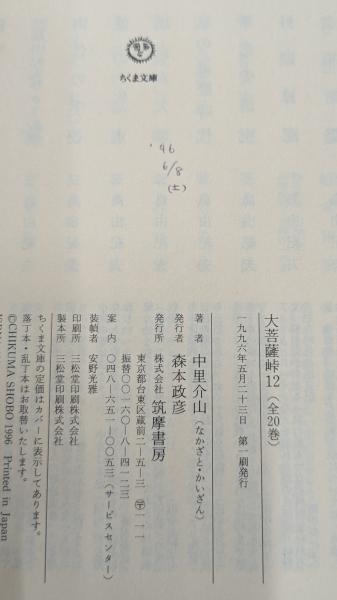 ちくま文庫
'96
6/8
(土)
大菩薩峠12(全20巻)
一九九六年五月二十三日 第一刷発行
著者 中里介山(なかざと・かいざん)
発行者 森本政彦
発行所 株式会社 筑摩書房
東京都台東区蔵前二―五―三 〒一一一
振替〇〇一六〇―八―四一二三
案内 〇四八―六五一―〇〇五三(サービスセンター)
装幀者 安野光雅
印刷所 三松堂印刷株式会社
製本所 三松堂印刷株式会社
ちくま文庫の定価はカバーに表示してあります。
落丁本・乱丁本はお取替いたします。
©CHIKUMA SHOBO 1996 Printed in Japan